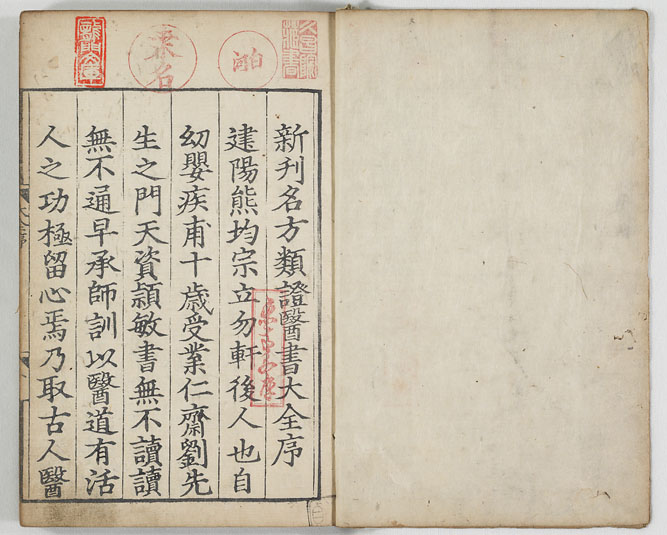 新刊名方類證醫書大全序
建陽熊均宗立勿軒後人也自
幼嬰疾甫十歳受業仁齋劉先
生之門天資頴敏書無不讀讀
無不通早承師訓以醫道有活
人之功極留心焉乃取古人醫